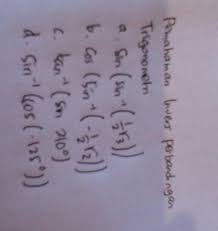 Pemahaman Invers perbandingan
Trigonometri
a. sin (sin⁻¹ (½√2))
b. cos (sin⁻¹ (-½√2))
c. tan⁻¹ (sin 270°)
d. sin⁻¹ (cos (-125°))